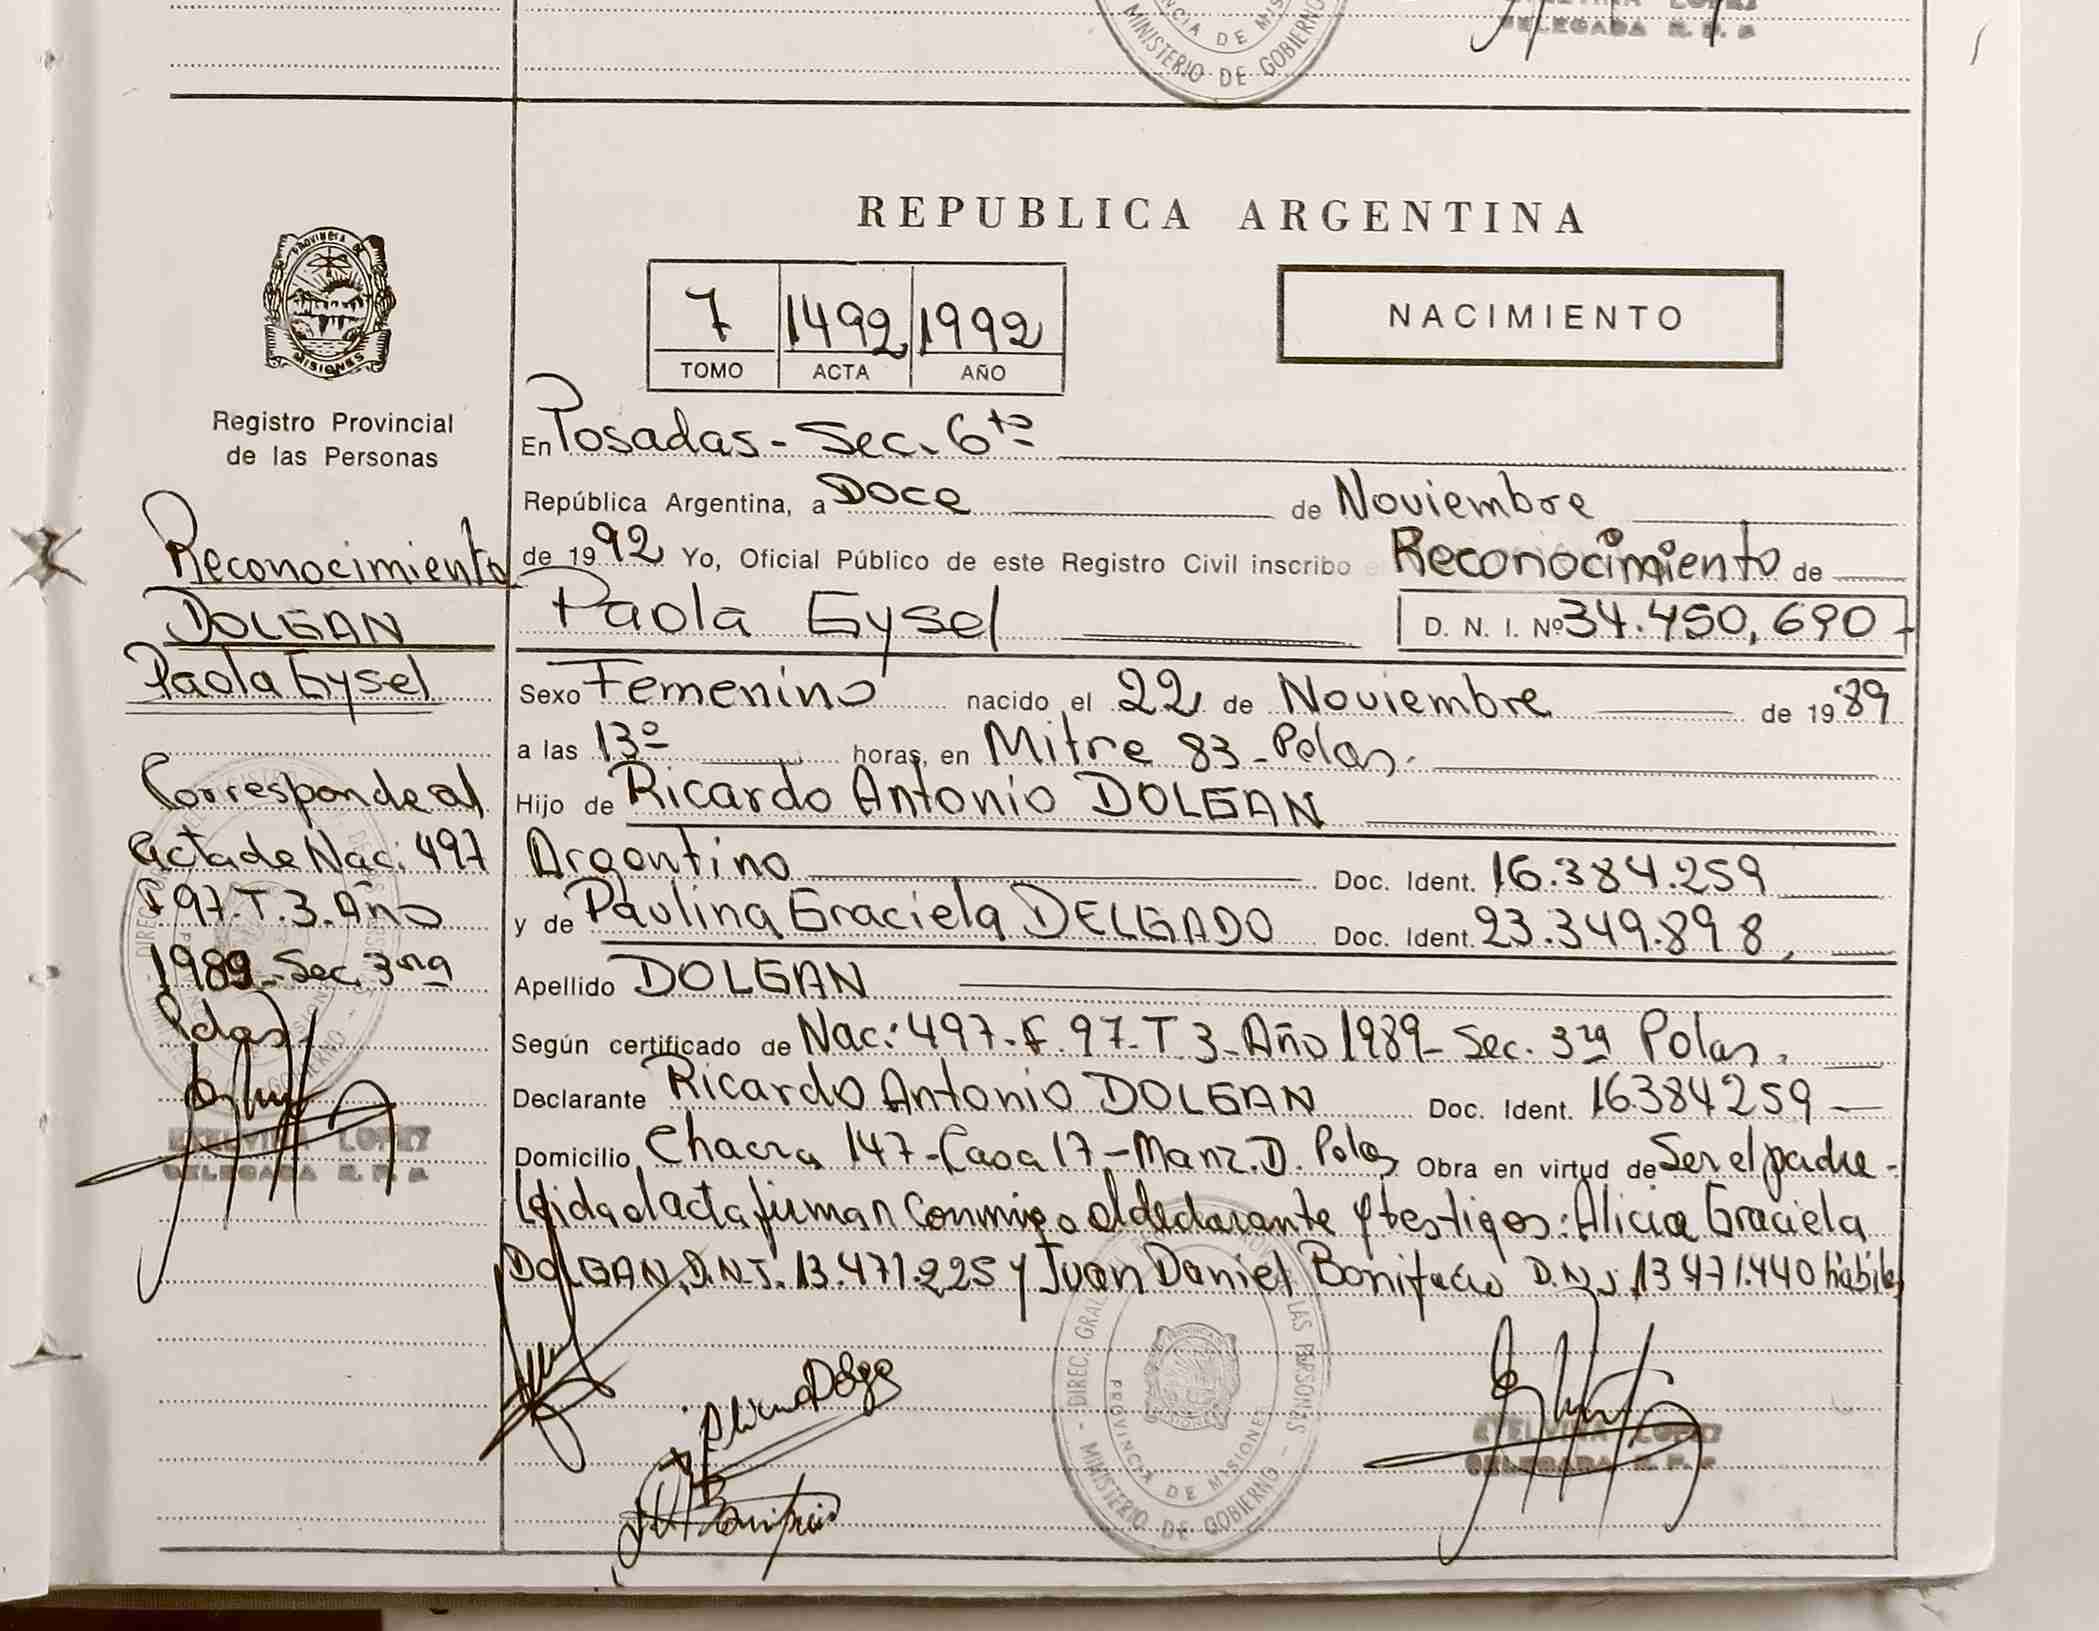 CIA DE MIS
MINISTERIO DE GOBIERNO
LOPEZ
DELEGADA R. P.
REPUBLICA ARGENTINA
PROVINCIA DE
MISIONES
7 1492 1992
TOMO ACTA AÑO
NACIMIENTO
Registro Provincial
de las Personas
En Posadas - Sec. 6ta
República Argentina, a Doce de Noviembre
de 1992 Yo, Oficial Público de este Registro Civil inscribo Reconocimiento de
Paola Gysel D. N. I. Nº 34.450,690-
Sexo Femenino nacido el 22 de Noviembre de 1989
a las 13º horas, en Mitre 83 - Pdas.
Hijo de Ricardo Antonio DOLGAN
Argentino Doc. Ident. 16.384.259
y de Paulina Graciela DELGADO Doc. Ident. 23.349.898,
Apellido DOLGAN
Según certificado de Nac: 497-F.97-T.3-Año 1989-Sec. 3ra Pdas.
Declarante Ricardo Antonio DOLGAN Doc. Ident. 16384259
Domicilio Chacra 147-Casa 17-Manz. D. Pdas Obra en virtud de Ser el padre-
leida el acta firman conmigo el declarante y testigos: Alicia Graciela
DOLGAN, D.N.I. 13.471.225 y Juan Daniel Bonifacio D.N.I. 13471.440 hábiles
Reconocimiento
DOLGAN
Paola Gysel
Corresponde al
acta de Nac: 497
F97.T.3.Año
1989-Sec. 3ra
Pdas
ETELVINA LOPEZ
DELEGADA R. P.
DIREC. GRAL. LAS PERSONAS - MINISTERIO DE GOBIERNO -
PROVINCIA DE MISIONES
Bonifacio
ETELVINA LOPEZ
DELEGADA R. P.